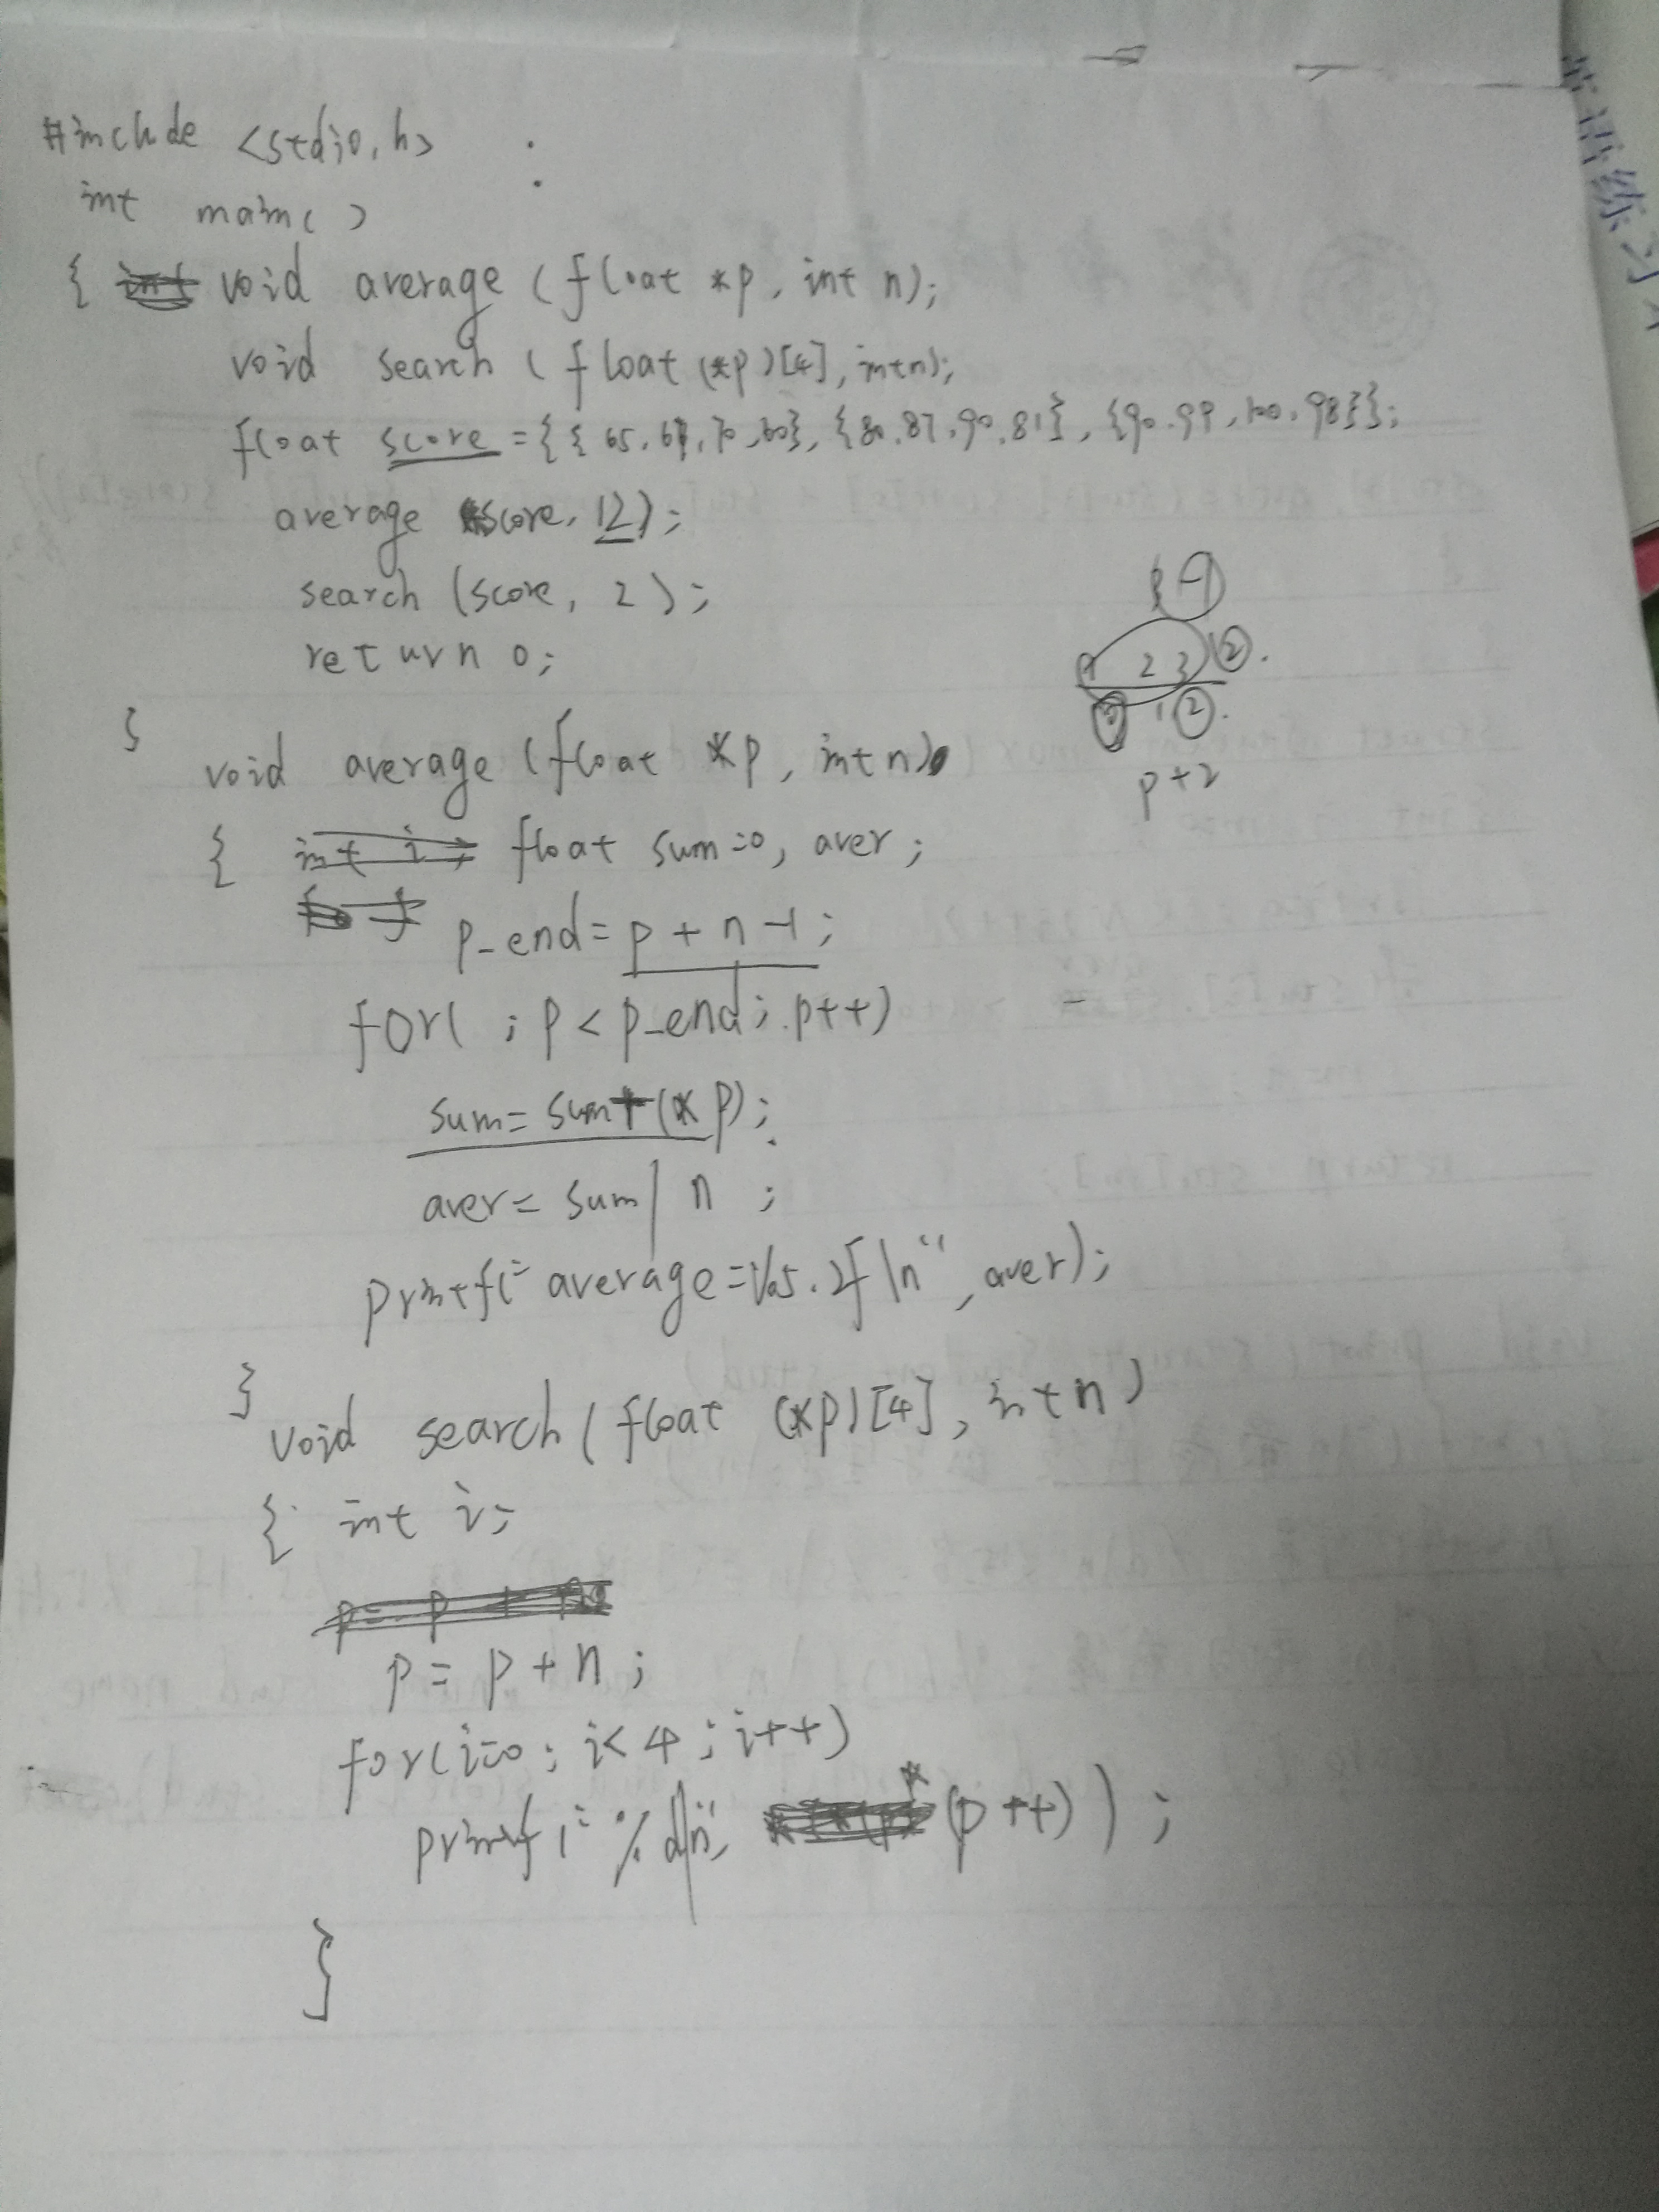 #include <stdio.h>
int main()
{ void average (float *p, int n);
void search (float (*p)[4], int n);
float score = {{65, 67, 70, 60}, {80, 87, 90, 81}, {90, 99, 100, 98}};
average *score, 12);
search (score, 2);
return 0;
}
void average (float *p, int n)
{ float sum=0, aver;
p_end = p + n -1;
for( ; p < p_end; p++)
sum = sum + (*p);
aver = sum / n ;
printf(" average=%5.2f\n", aver);
}
void search( float (*p)[4], int n)
{ int i;
p = p + n;
for(i=0; i<4; i++)
printf(" %d\n", *(p++));
}
2 3 ②.
1 ②.
p+2